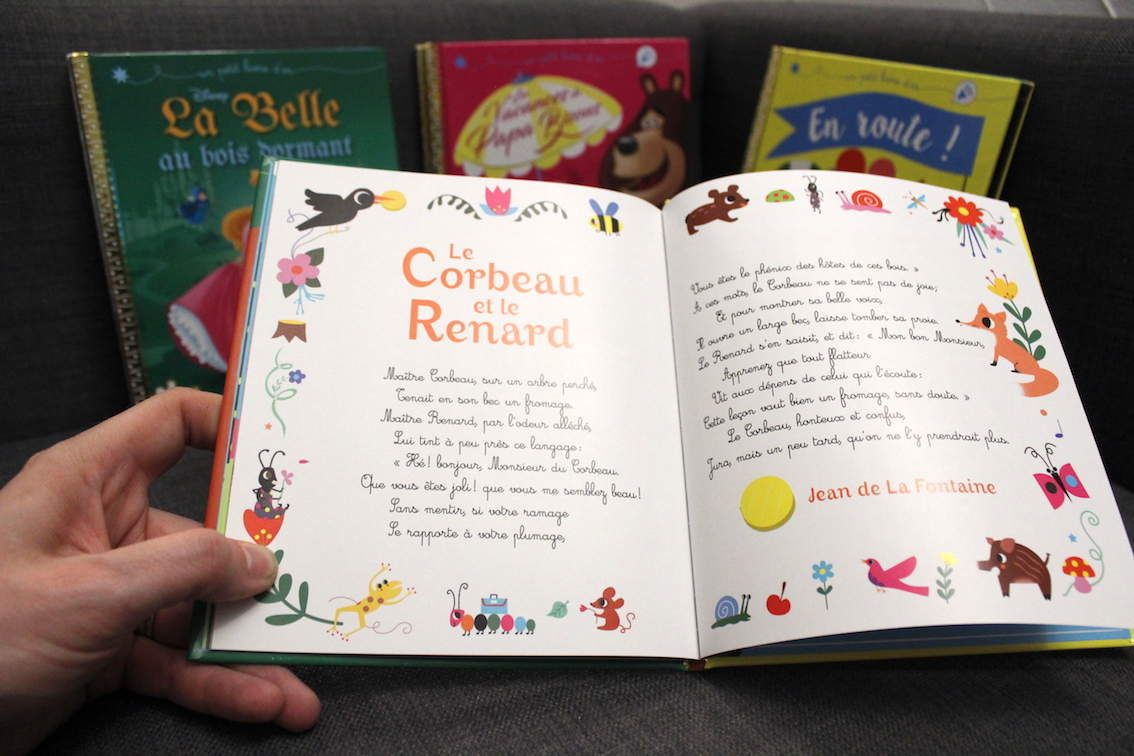 un petit livre d'or
Disney
La Belle
au bois dormant
un petit livre d'or
Vacances
Papa
un petit livre d'or
En route !
Le
Corbeau
et le
Renard
Maître Corbeau, sur un arbre perché,
Tenait en son bec un fromage.
Maître Renard, par l'odeur alléché,
Lui tint à peu près ce langage :
« Hé ! bonjour, Monsieur du Corbeau.
Que vous êtes joli ! que vous me semblez beau !
Sans mentir, si votre ramage
Se rapporte à votre plumage,
Vous êtes le phénix des hôtes de ces bois. »
À ces mots, le Corbeau ne se sent pas de joie;
Et pour montrer sa belle voix,
Il ouvre un large bec, laisse tomber sa proie.
Le Renard s'en saisit, et dit : « Mon bon Monsieur,
Apprenez que tout flatteur
Vit aux dépens de celui qui l'écoute :
Cette leçon vaut bien un fromage, sans doute. »
Le Corbeau, honteux et confus,
Jura, mais un peu tard, qu'on ne l'y prendrait plus.
Jean de La Fontaine